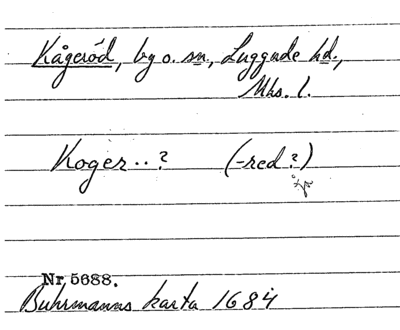 Kågeröd, by o. sn, Luggude hd.,
Mhs. l.
Koger..? (-red?)
Nr 5688.
Buhrmanns karta 1684